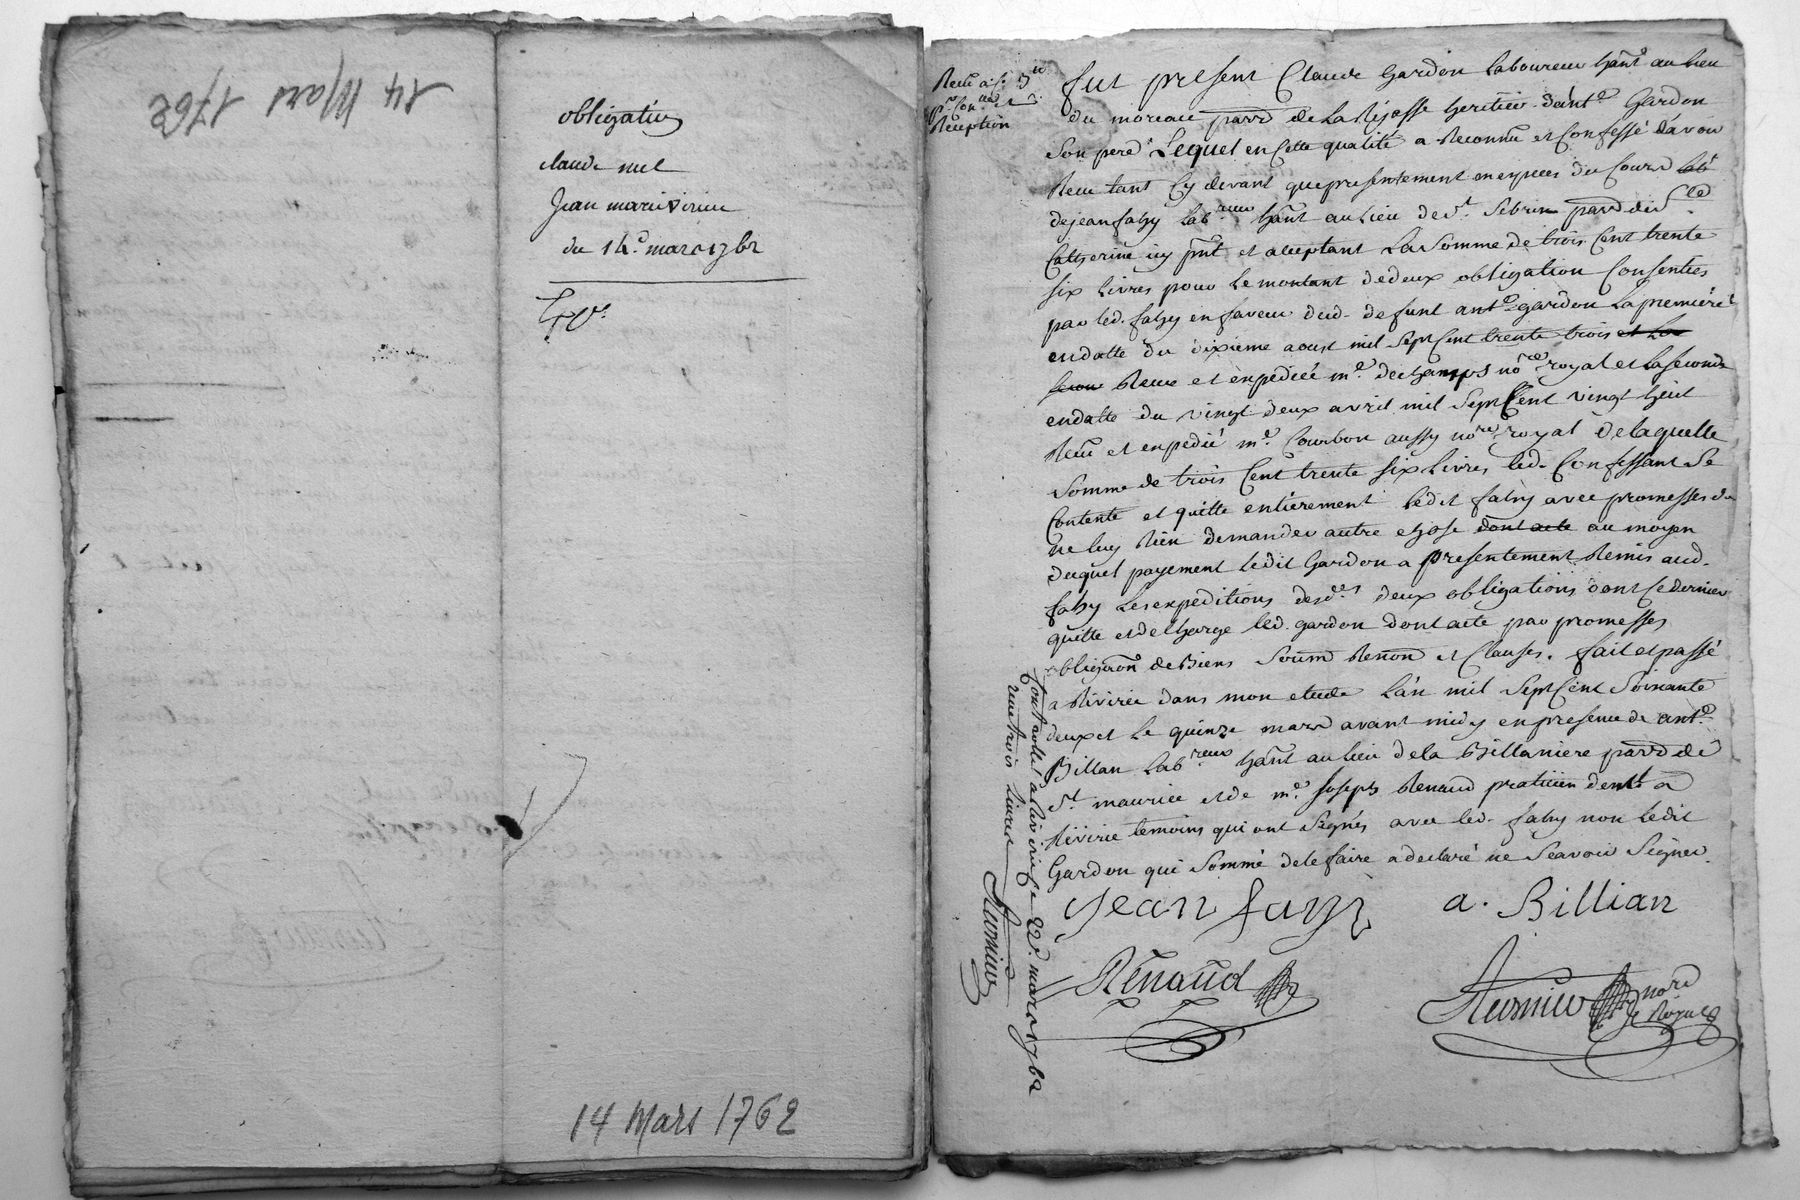 14 Mars 1762
obligation
claude nuel
Jean marie virieu
du 14e. mars 1762
14 Mars 1762
Receu
Reception
fut present Claude Gardon laboureur hant au lieu
du moreau parr de La Rejasse heritier deant.e Gardon
son pere Lequel en Cette qualité a Reconnu et Confessé d'avoir
Receu tant Cy devant que presentement en especes du Cours
de jean fahy lab.reur hant au lieu de st. sebrin parr de Ste
Catherine icy pnt et aceptant La somme de trois Cent trente
six livres pour le montant de deux obligation Consenties
par led. fahy en faveur dud. defunt ant.e gardon La premiere
en datte du dixieme aoust mil sept Cent trente trois et La
secon Receue et expediée me. dechamps nore royal et La seconde
en datte du vingt deux avril mil sept Cent vingt heit
Receu et expedié me. Courbon aussy nore royal de laquelle
somme de trois Cent trente six livres led. Confessant se
Contente et quitte entierement ledit fahy avec promesses de
ne luy Rien demander autre chose dont acte au moyen
duquel payement ledit Gardon a presentement Remis aud.
fahy Les expeditions desd. deux obligations dont Ce dernier
quitte et decharge led. gardon dont acte par promesses
obligaon de Biens soum Renon et Clauses. fait et passé
a Rivirie dans mon etude L'an mil sept Cent soixante
deux et le quinze mars avant midy en presence de ant.e
Billan lab.reur hant au lieu de la Billaniere parr de
st. maurice et de me. Joseph Renaud praticien demt. a
Rivirie temoins qui ont signés avec led. fahy non ledit
Gardon qui sommé de le faire a declaré ne sçavoir signer
Jean fayy a. Billian
Rénaud
Meunier nore Royal
Controllé a Rivirie le 22e. mars 1762
receu trois Livres
Meunier